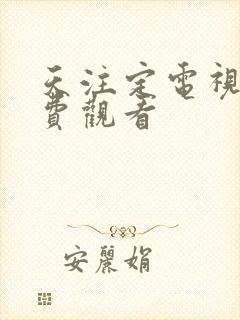 天注定電視
費觀看
安麗娟